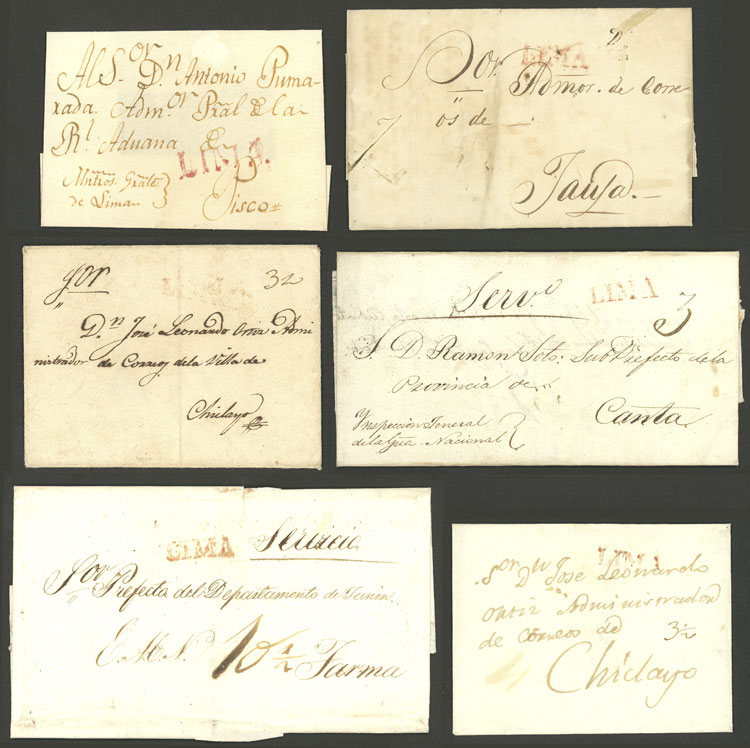 Al S.or D.n Antonio Puma-
rada. Adm.or Pral de la
Rl. Aduana de
LIMA.
de Lima
Pisco
LIMA
S.or Admor. de Corre
os de
Tauja.
Sor
32
D.n José Leonardo Ortiz Admi
nistrador de Correos de la Villa de
Chiclayo
Serv.o
LIMA
3
S. D. Ramon Soto: Sub Prefecto de la
Provincia de
Canta
Ynspeccion General
de la Gua. Nacional
LIMA
Servicio
Sor Prefecto del Departamento de Junin.
E.M.N. 10½ Tarma
LIMA
Sor Dn Jose Leonardo
Ortiz Administrador
de Correos de 3½
Chiclayo